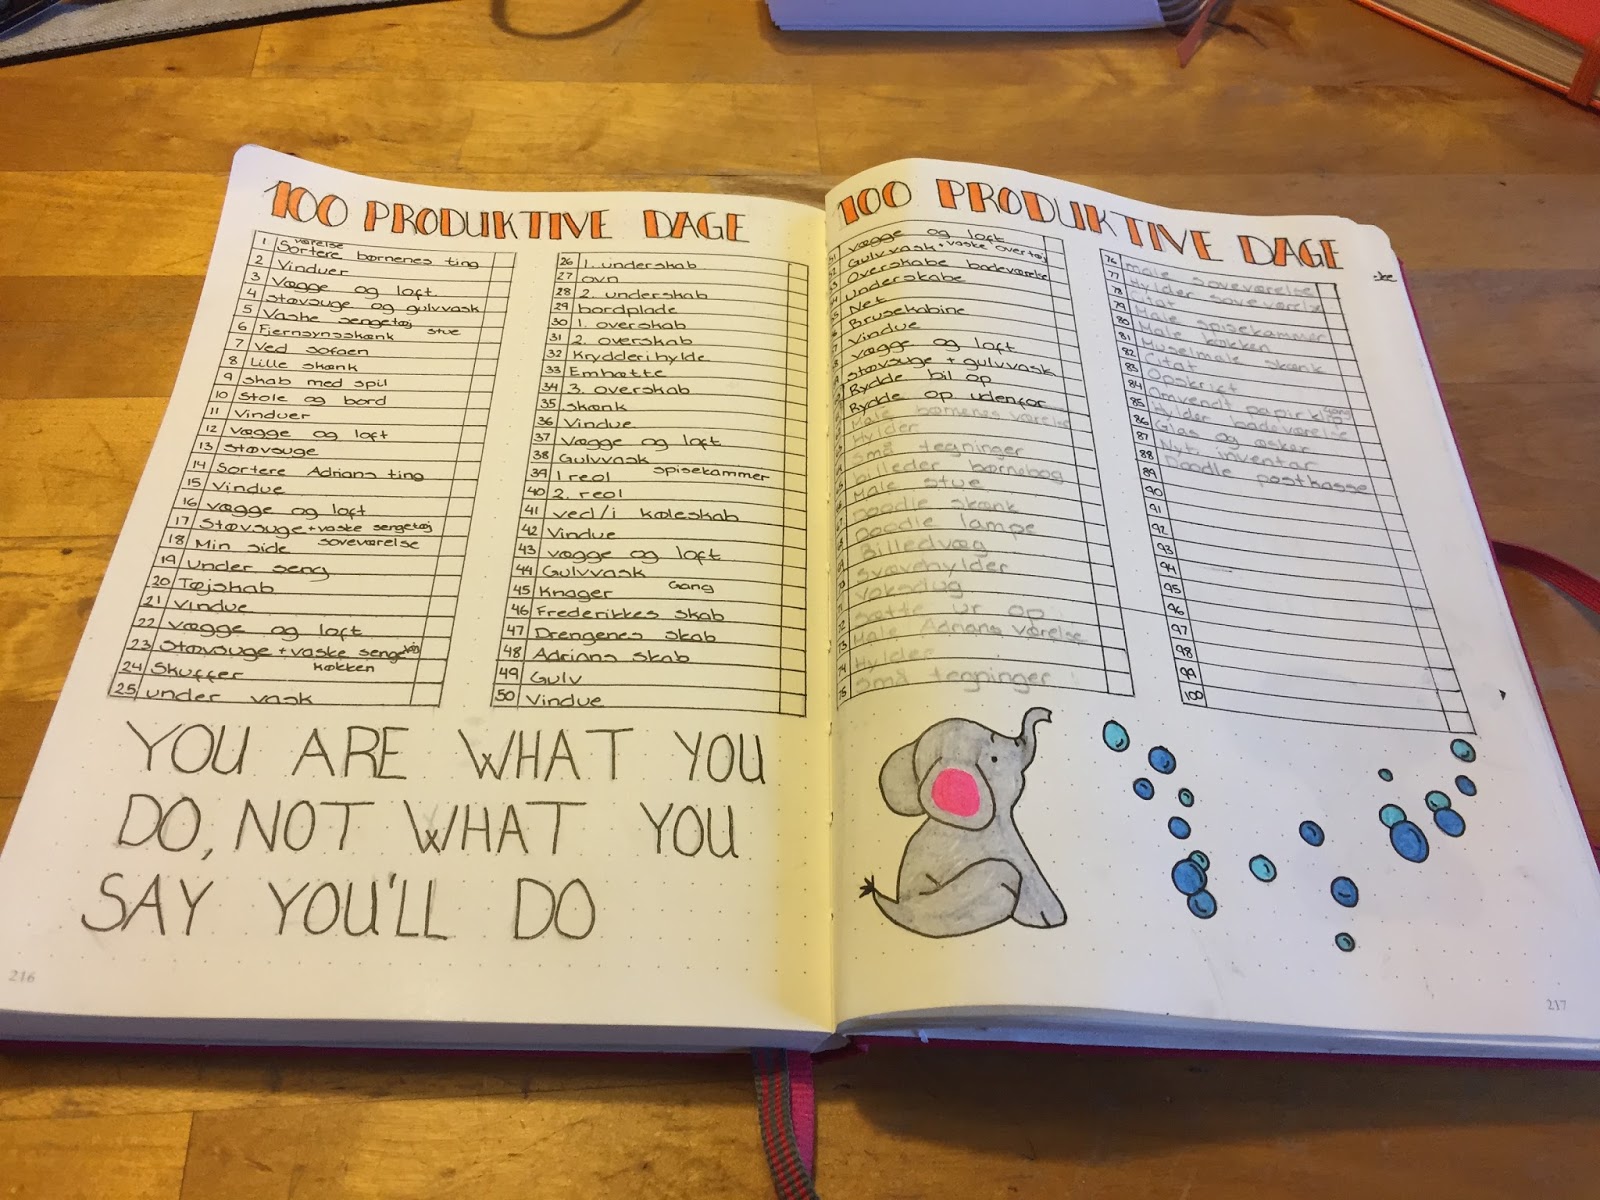 100 PRODUKTIVE DAGE
værelse
1 Sortere børnenes ting
2 Vinduer
3 Vægge og loft
4 Støvsuge og gulvvask
5 Vaske sengetøj
stue
6 Fjernsynsskænk
7 Ved sofaen
8 Lille skænk
9 Skab med spil
10 Stole og bord
11 Vinduer
12 Vægge og loft
13 Støvsuge
14 Sortere Adrians ting
15 Vindue
16 vægge og loft
17 Støvsuge + vaske sengetøj
soveværelse
18 Min side
19 under seng
20 Tøjskab
21 Vindue
22 Vægge og loft
23 Støvsuge + vaske sengetøj
køkken
24 Skuffer
25 under vask
26 1. underskab
27 ovn
28 2. underskab
29 bordplade
30 1. overskab
31 2. overskab
32 Krydderihylde
33 Emhætte
34 3. overskab
35 skænk
36 Vindue
37 Vægge og loft
38 Gulvvask
spisekammer
39 1 reol
40 2. reol
41 ved/i køleskab
42 Vindue
43 vægge og loft
44 Gulvvask
gang
45 Knager
46 Frederikkes skab
47 Drengenes skab
48 Adrians skab
49 Gulv
50 Vindue
YOU ARE WHAT YOU
DO, NOT WHAT YOU
SAY YOU'LL DO
216
100 PRODUKTIVE DAGE
vægge og loft
Gulvvask + vaske overtøj
Overskabe badeværelse
Underskabe
Net
Brusekabine
Vindue
vægge og loft
Støvsuge + gulvvask
Rydde bil op
Rydde op udenfor
Male børnenes værelse
Hylder
Små tegninger
billeder børnebog
Male stue
Doodle skænk
Doodle lampe
Billedvæg
Svævehylder
Voksdug
Sætte ur op
Male Adrians værelse
74 Hylder
75 Små tegninger
76 male soveværelse
77 Hylder soveværelse
78 Citat
79 Male spisekammer
80 Male køkken
81 Muselmale skænk
82 Citat
83 Opskrift
84 Omvendt papirklip
gang
85 Hylder badeværelse
86 Glas og æsker
87 Nyt inventar
88 Doodle postkasse
89
90
91
92
93
94
95
96
97
98
99
100
217